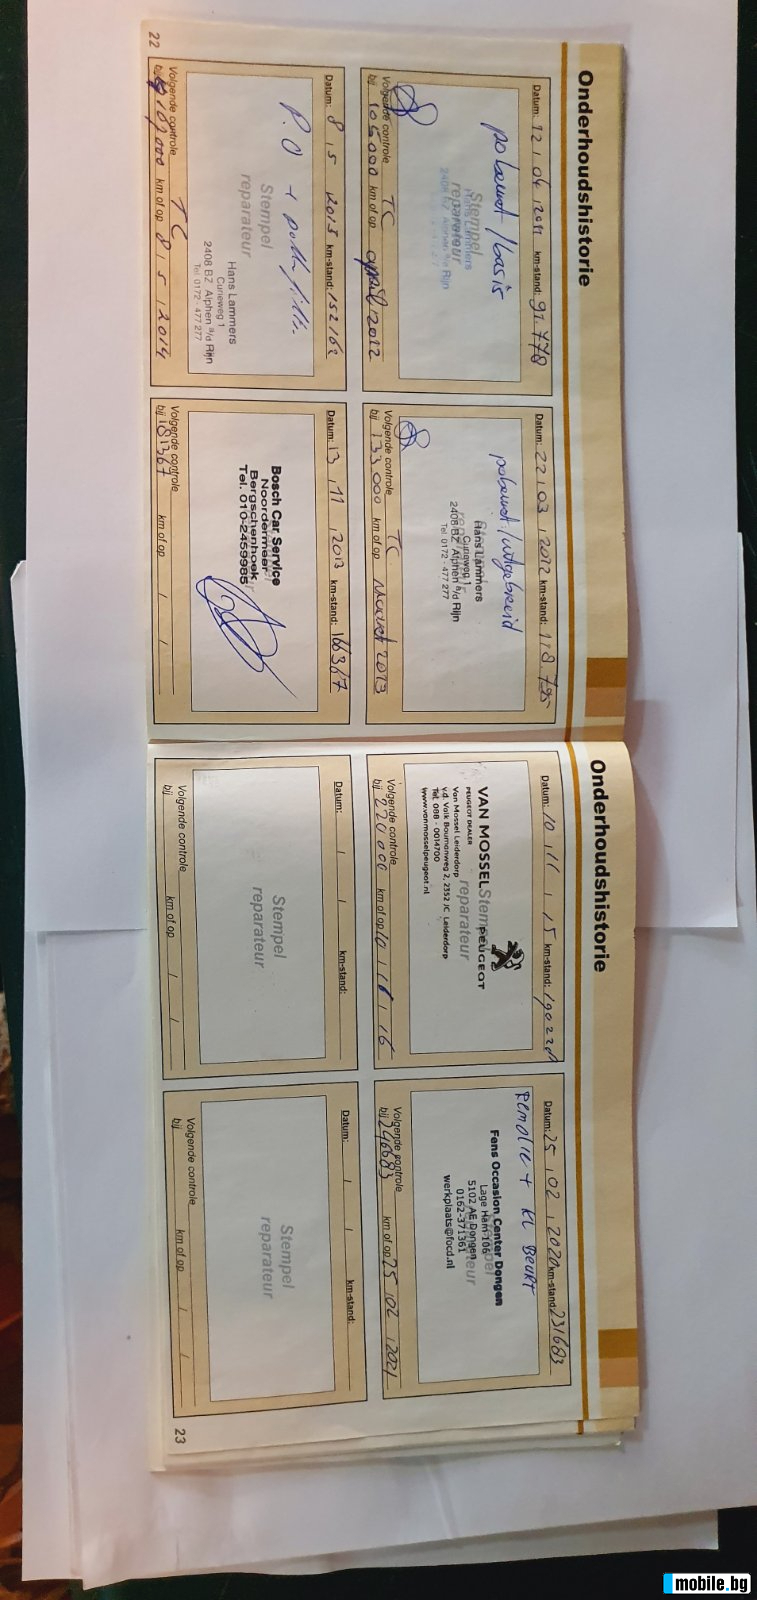 mobile.bg
Onderhoudshistorie
Datum: 12 / 04 / 2011 km-stand: 91.778
pobeurt /basis
Stempel
Hans Lammers
reparateur
2408 BZ Alphen a/d Rijn
Volgende controle TC
bij 105000 km of op april 2012
Datum: 22 / 03 / 2012 km-stand: 118.795
pobeurt /uitgebreid
Stempel
Hans Lammers
Curieweg 1
reparateur
2408 BZ Alphen a/d Rijn
Tel. 0172 - 477 277
Volgende controle TC
bij 133.000 km of op Maart 2013
Datum: 8 / 5 2013 km-stand: 152162
P.O +
Stempel
reparateur
Hans Lammers
Curieweg 1
2408 BZ Alphen a/d Rijn
Tel. 0172 - 477 277
Volgende controle TC
bij km of op 8 / 5 / 2014
Datum: 13 / 11 / 2013 km-stand: 166367
Bosch Car Service
Noordermeer
Bergschenhoek
Tel. 010-2459985
Volgende controle
bij 181367 km of op / /
22
Onderhoudshistorie
Datum: 10 / 11 / 15 km-stand: 190228
VAN MOSSEL Stempel PEUGEOT
PEUGEOT DEALER reparateur
Van Mossel Leiderdorp
v.d. Valk Boumanweg 2, 2352 JC Leiderdorp
Tel. 088 - 0014700
www.vanmosselpeugeot.nl
Volgende controle
bij 220000 km of op 10 / 11 / 16
Datum: 25 / 02 / 2020 km-stand: 231683
+ KL Beurt
Fens Occasion Center Dongen
Stempel
Lage Ham 106
reparateur
5102 AE Dongen
0162-371361
werkplaats@focd.nl
Volgende controle
bij 246683 km of op 25 / 02 / 2021
Datum: / / km-stand:
Stempel
reparateur
Volgende controle
bij km of op / /
Datum: / / km-stand:
Stempel
reparateur
Volgende controle
bij km of op / /
23